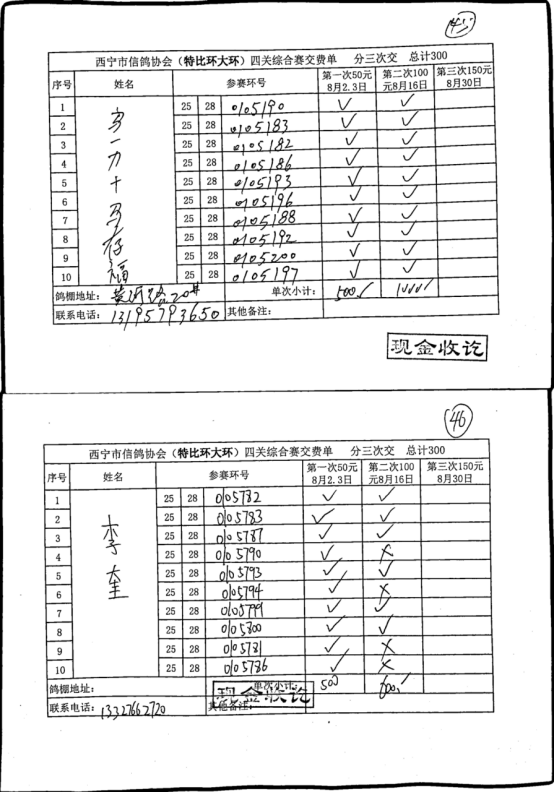 45
西宁市信鸽协会（特比环大环）四关综合赛交费单 分三次交 总计300
序号 姓名 参赛环号 第一次50元 8月2.3日 第二次100元8月16日 第三次150元 8月30日
1 25 28 0105190 ✓ ✓
2 25 28 0105183 ✓ ✓
3 25 28 0105182 ✓ ✓
4 25 28 0105186 ✓ ✓
5 25 28 0105193 ✓ ✓
6 25 28 0105196 ✓ ✓
7 25 28 0105188 ✓ ✓
8 25 28 0105192 ✓ ✓
9 25 28 0105200 ✓ ✓
10 25 28 0105197 ✓ ✓
鸽棚地址：黄河路20# 单次小计： 500 1000
联系电话：13195793650 其他备注：
现金收讫
46
西宁市信鸽协会（特比环大环）四关综合赛交费单 分三次交 总计300
序号 姓名 参赛环号 第一次50元 8月2.3日 第二次100元8月16日 第三次150元 8月30日
李奎
1 25 28 0105782 ✓ ✓
2 25 28 0105783 ✓ ✓
3 25 28 0105787 ✓ ✓
4 25 28 0105790 ✓ ×
5 25 28 0105793 ✓ ✓
6 25 28 0105794 ✓ ×
7 25 28 0105799 ✓ ✓
8 25 28 0105800 ✓ ✓
9 25 28 0105781 ✓ ×
10 25 28 0105786 ✓ ×
鸽棚地址： 单次小计： 500 600
联系电话：13327662720 其他备注：
现金收讫